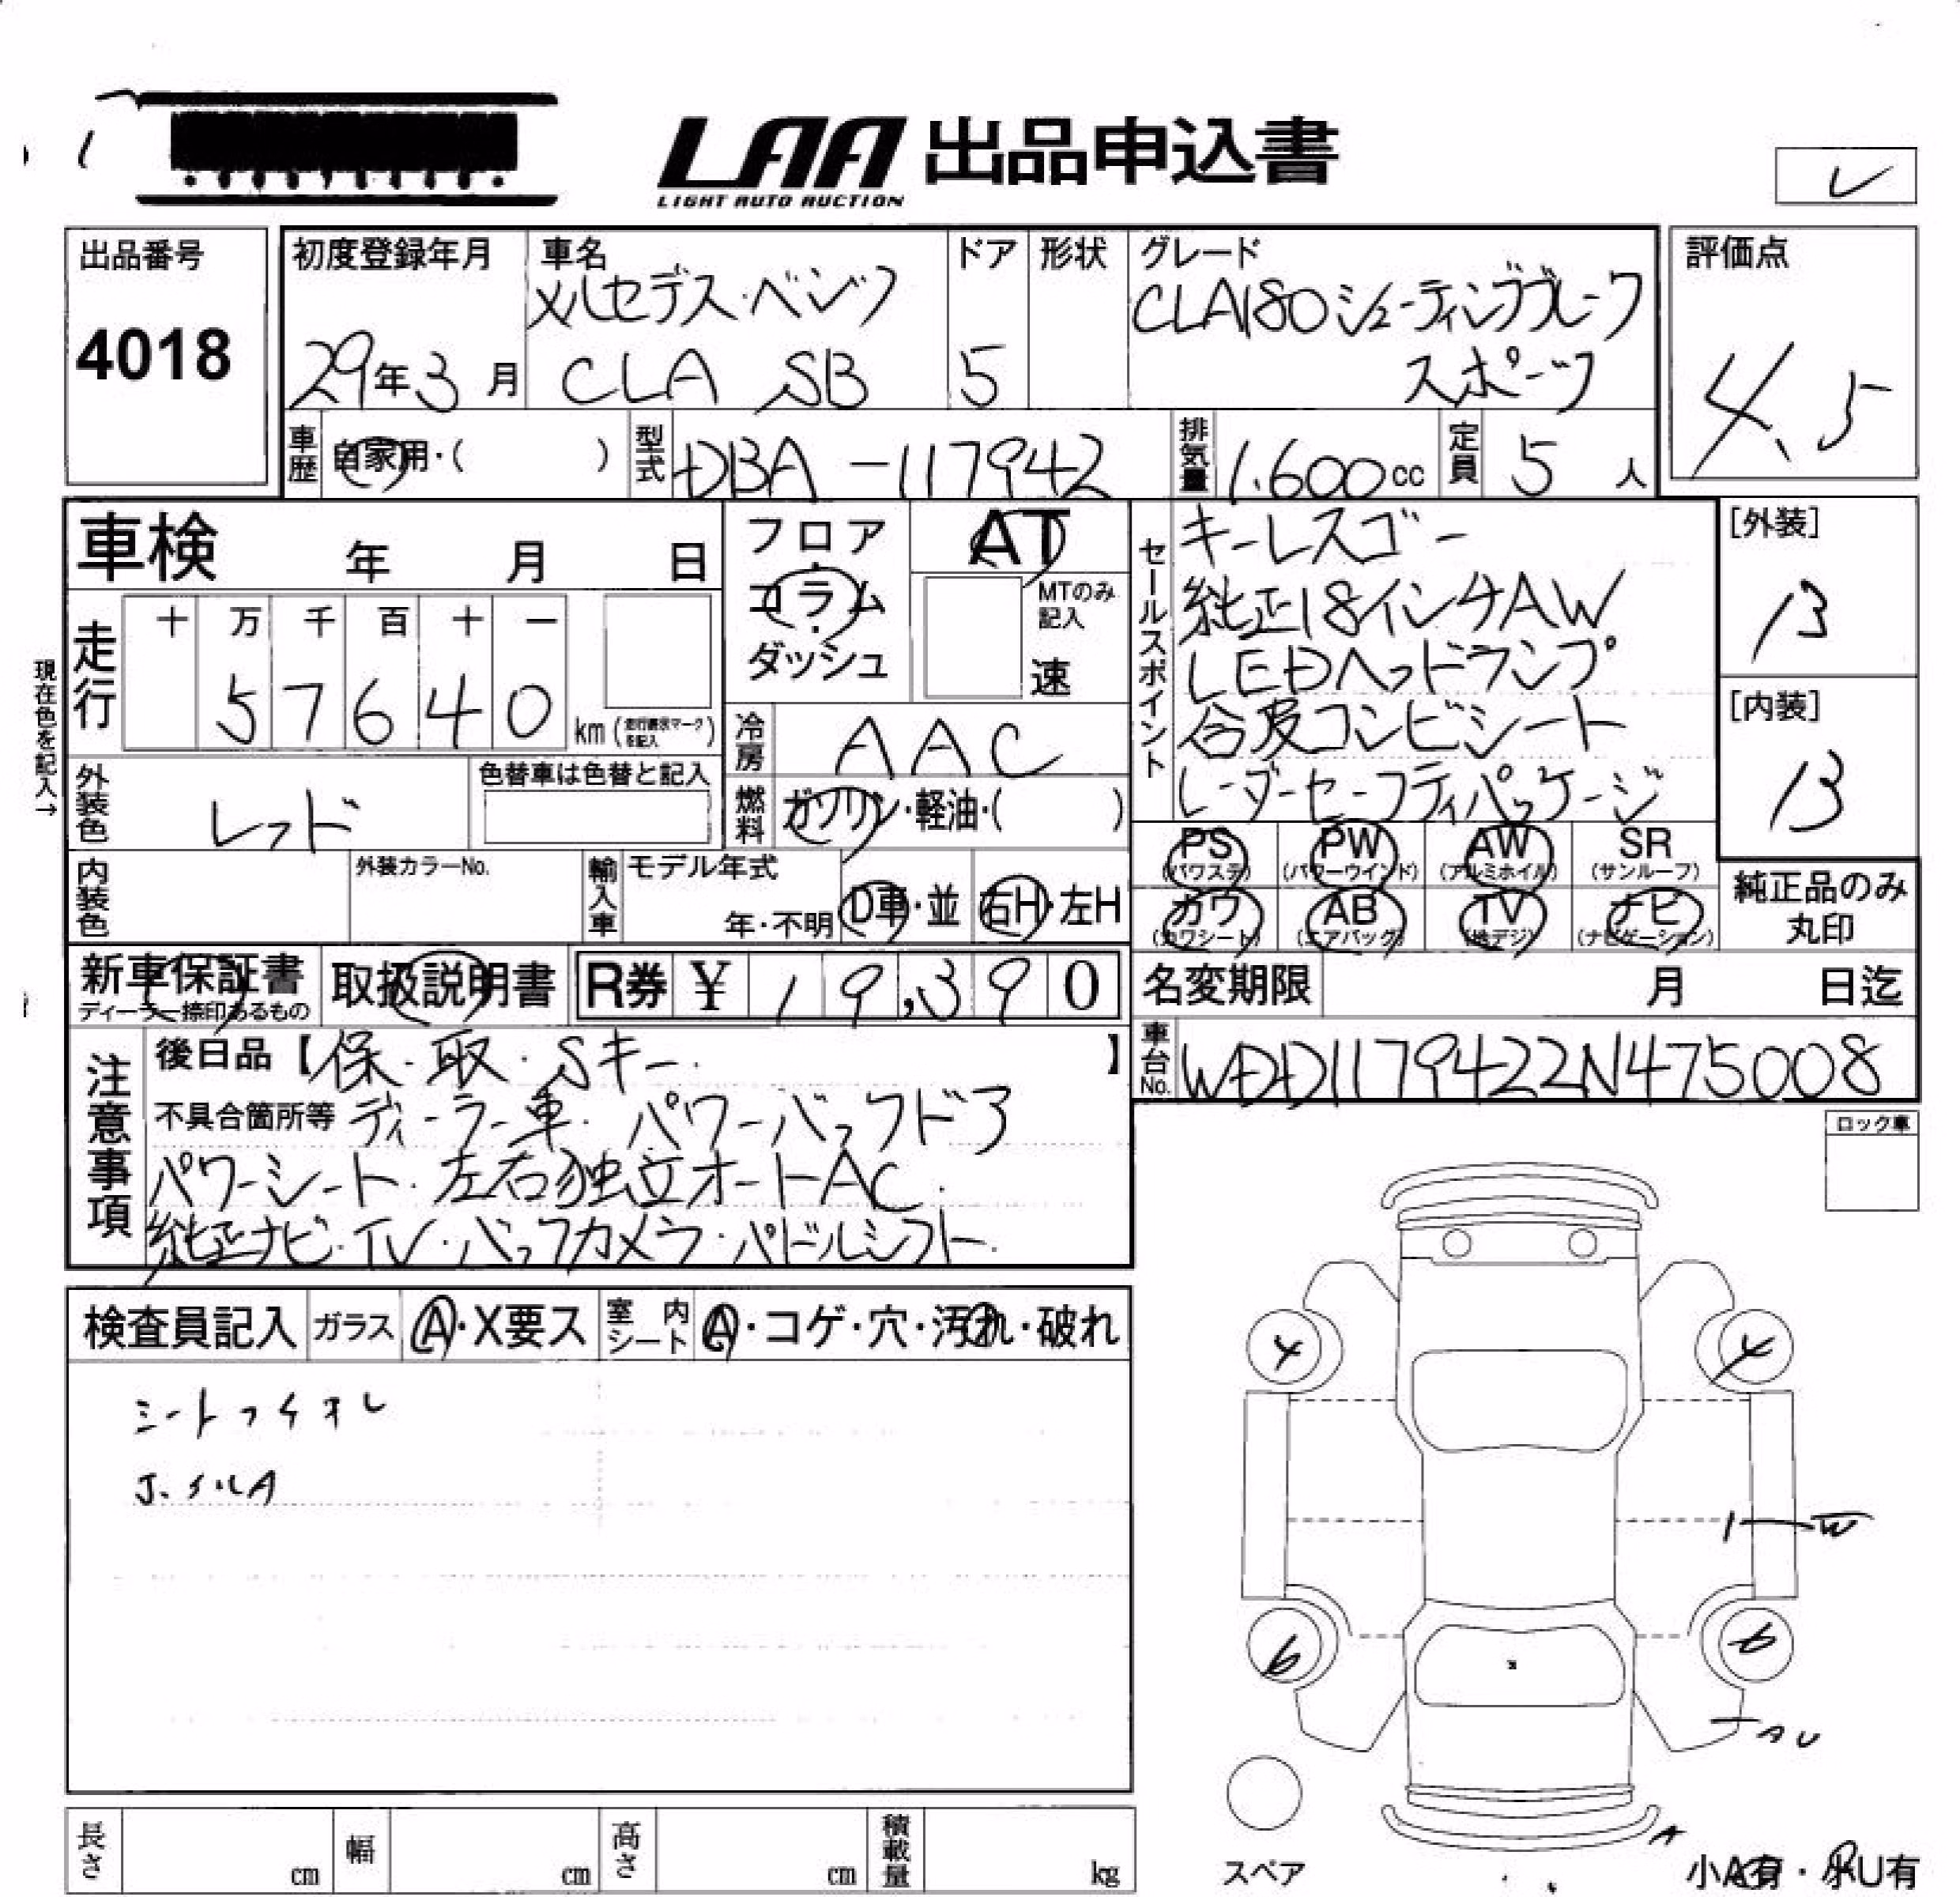 LAA 出品申込書
LIGHT AUTO AUCTION
レ
出品番号
4018
初度登録年月
29年3月
車名
メルセデス・ベンツ
CLA SB
ドア
5
形状
グレード
CLA180シューティングブレーク
スポーツ
評価点
4.5
車歴 自家用・( )
型式 DBA-117942
排気量 1.600cc
定員 5人
車検 年 月 日
フロア・コラム・ダッシュ
AT
MTのみ記入
速
走行 十 万 千 百 十 一
57640 km (走行表示マークを記入)
現在色を記入→
冷房 AAC
外装色 レッド
色替車は色替と記入
燃料 ガソリン・軽油・( )
内装色
外装カラーNo.
輸入車
モデル年式
年・不明
D車・並
右H・左H
セールスポイント
キーレスゴー
純正18インチAW
LEDヘッドランプ
合皮コンビシート
レーダーセーフティパッケージ
[外装]
13
[内装]
13
PS (パワステ) PW (パワーウインド) AW (アルミホイル) SR (サンルーフ)
カワ (カワシート) AB (エアバッグ) TV (地デジ) ナビ (ナビゲーション)
純正品のみ丸印
新車保証書
ディーラー捺印あるもの
取扱説明書
R券 ¥ 19,390
名変期限 月 日迄
車台No. WDD1179422N475008
注意事項
後日品【保・取・Sキー 】
不具合箇所等 ディーラー車・パワーバックドア
パワーシート・左右独立オートAC・
純正ナビ・TV・バックカメラ・パドルシフト・
ロック車
検査員記入 ガラス A・X要ス 室内シート A・コゲ・穴・汚れ・破れ
ホイルA
4 4
W
6 6
A
スペア
小A有・小U有
長さ cm 幅 cm 高さ cm 積載量 kg